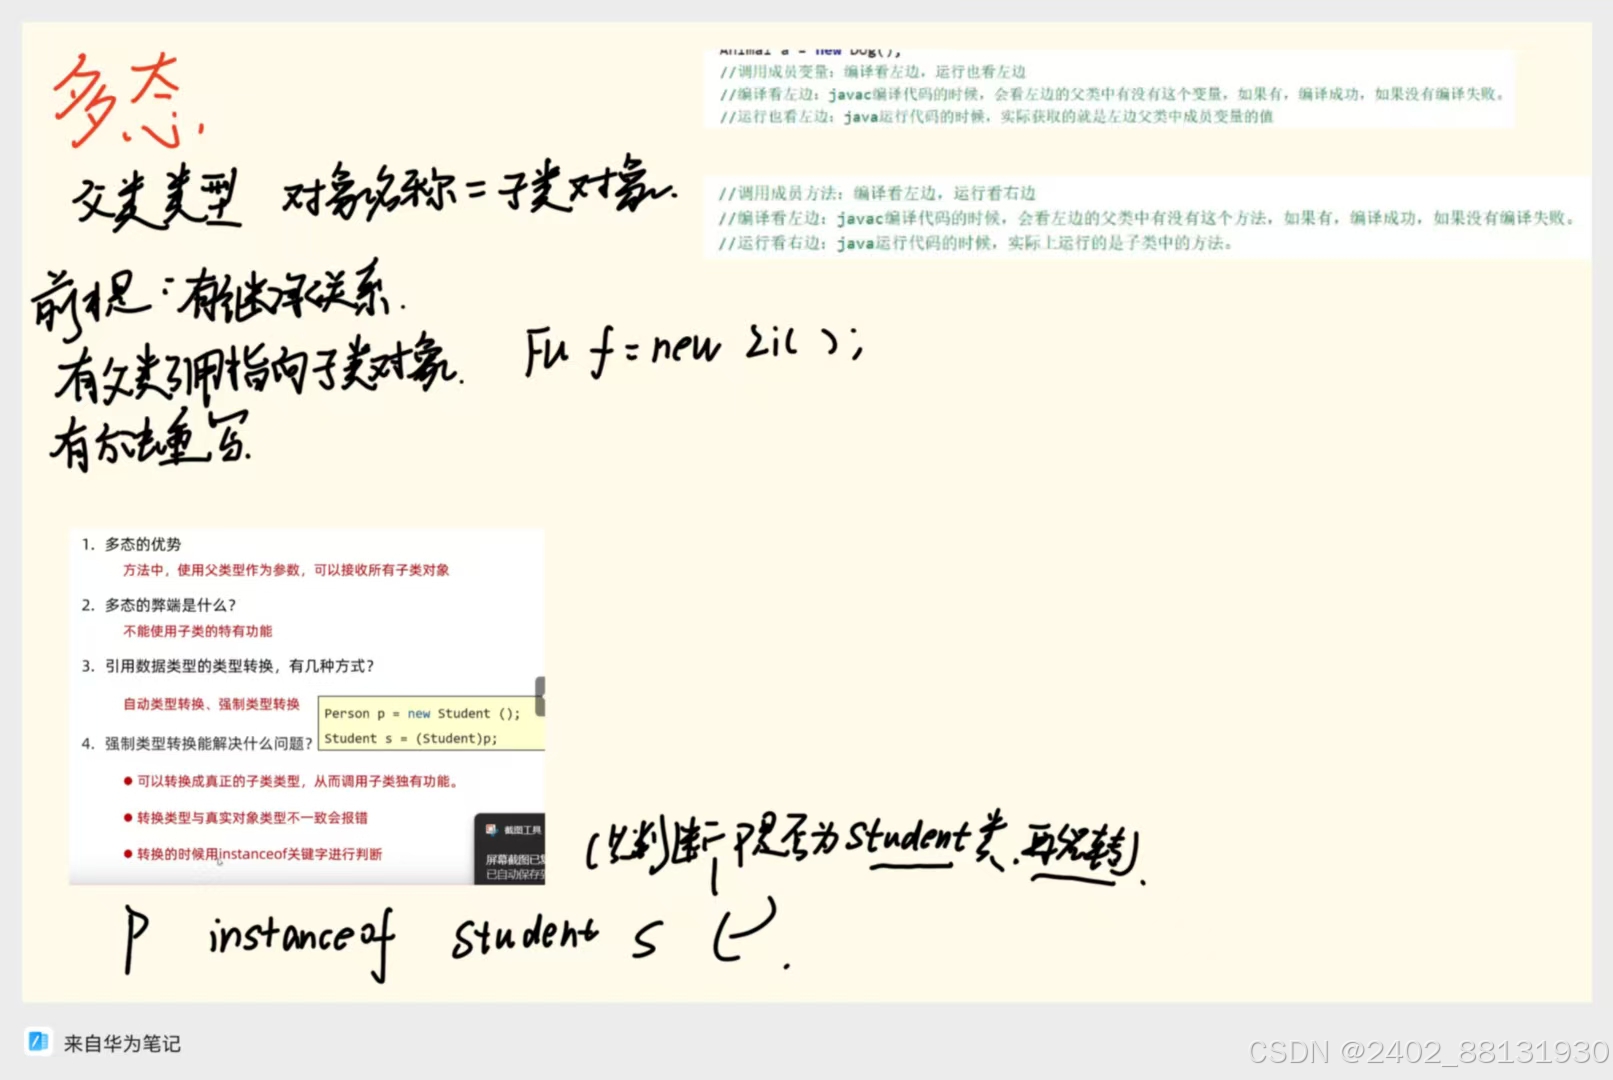 多态.
父类类型 对象名称 = 子类对象.
前提：有继承关系.
有父类引用指向子类对象. Fu f = new Zi();
有方法重写.
Animal a = new Dog();
//调用成员变量：编译看左边，运行也看左边
//编译看左边：javac编译代码的时候，会看左边的父类中有没有这个变量，如果有，编译成功，如果没有编译失败。
//运行也看左边：java运行代码的时候，实际获取的就是左边父类中成员变量的值
//调用成员方法：编译看左边，运行看右边
//编译看左边：javac编译代码的时候，会看左边的父类中有没有这个方法，如果有，编译成功，如果没有编译失败。
//运行看右边：java运行代码的时候，实际上运行的是子类中的方法。
1. 多态的优势
方法中，使用父类型作为参数，可以接收所有子类对象
2. 多态的弊端是什么？
不能使用子类的特有功能
3. 引用数据类型的类型转换，有几种方式？
自动类型转换、强制类型转换
Person p = new Student ();
Student s = (Student)p;
4. 强制类型转换能解决什么问题？
● 可以转换成真正的子类类型，从而调用子类独有功能。
● 转换类型与真实对象类型不一致会报错
● 转换的时候用instanceof关键字进行判断
截图工具
屏幕截图已
已自动保存
(先判断 p是否为Student类.再强转).
p instanceof Student s
来自华为笔记
CSDN @2402_88131930